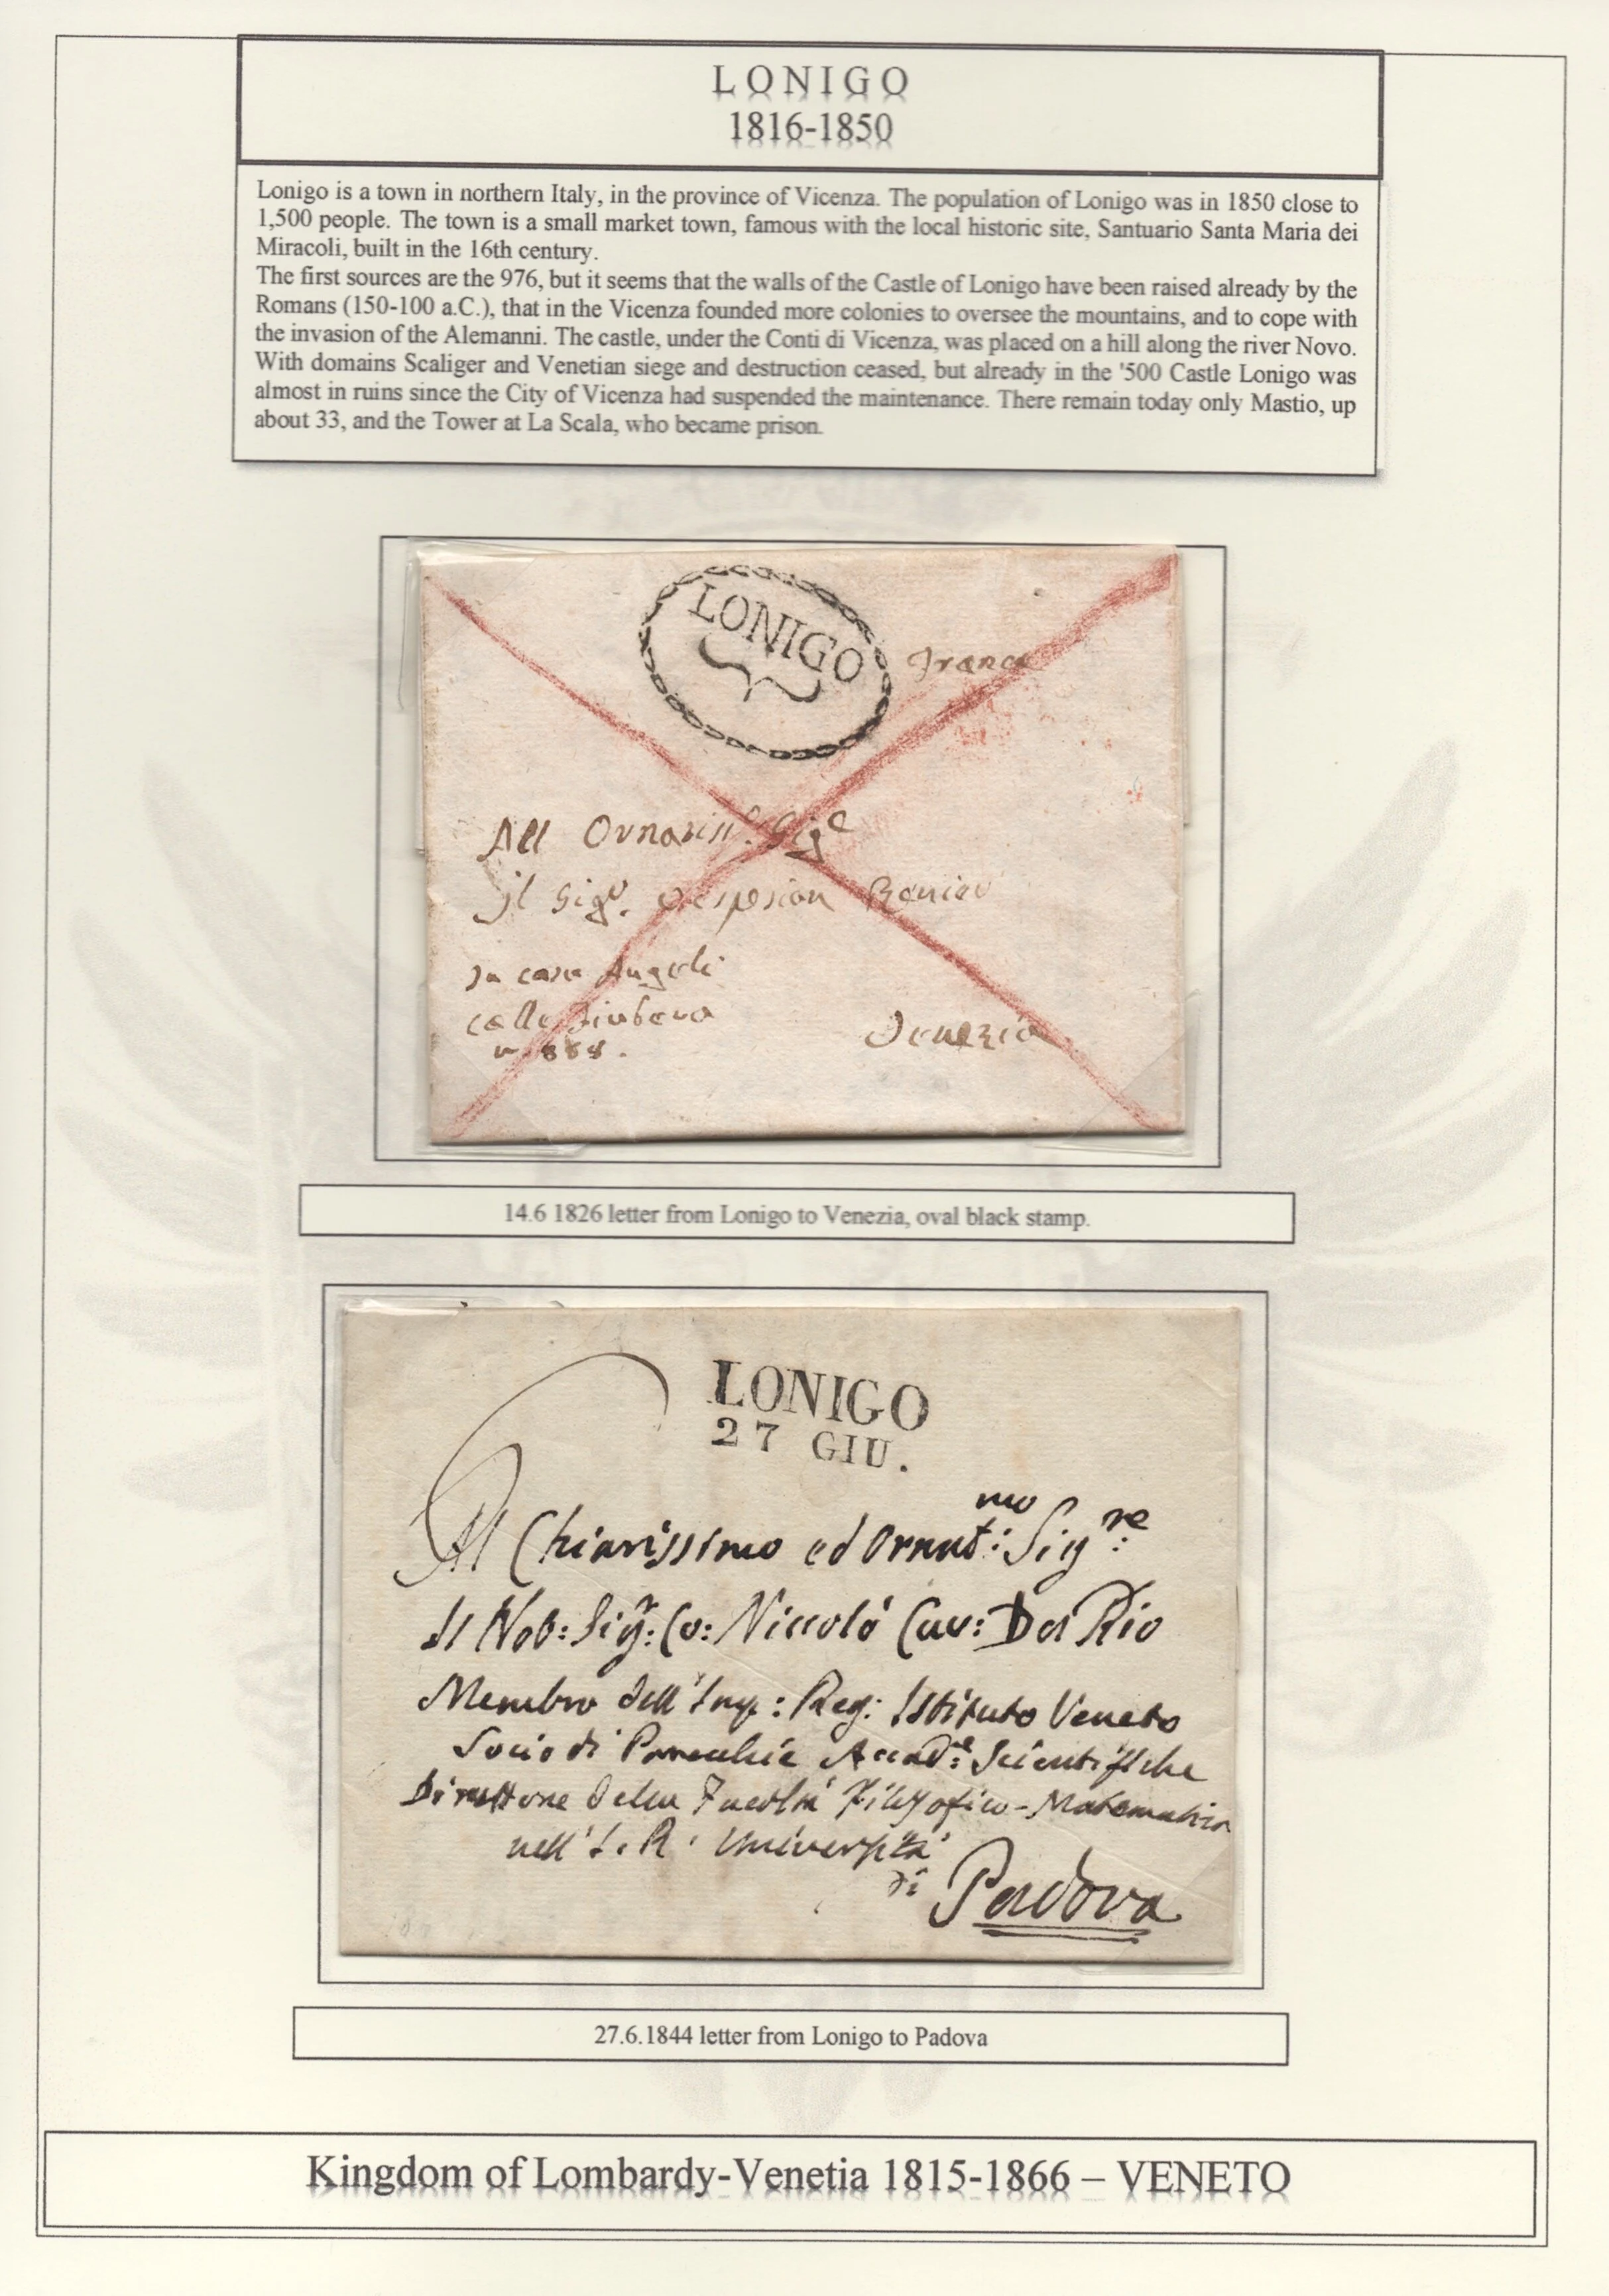 LONIGO
1816-1850
Lonigo is a town in northern Italy, in the province of Vicenza. The population of Lonigo was in 1850 close to
1,500 people. The town is a small market town, famous with the local historic site, Santuario Santa Maria dei
Miracoli, built in the 16th century.
The first sources are the 976, but it seems that the walls of the Castle of Lonigo have been raised already by the
Romans (150-100 a.C.), that in the Vicenza founded more colonies to oversee the mountains, and to cope with
the invasion of the Alemanni. The castle, under the Conti di Vicenza, was placed on a hill along the river Novo.
With domains Scaliger and Venetian siege and destruction ceased, but already in the '500 Castle Lonigo was
almost in ruins since the City of Vicenza had suspended the maintenance. There remain today only Mastio, up
about 33, and the Tower at La Scala, who became prison.
LONIGO
Franca
All Ornatiss.º Sig.e
il Sig.r Renier
In casa Angeli
calle
Venezia
14.6 1826 letter from Lonigo to Venezia, oval black stamp.
LONIGO
27 GIU.
Al Chiarissimo ed Ornat:mo Sig:re
Il Nob: Sig:r Co: Niccolò Cav: Da Rio
Membro dell' Imp: Reg: Istituto Veneto
Socio di Parecchie Accad:e Scientifiche
Direttore della Facoltà Filosofico-Matematica
nell' I. R. Università
di Padova
27.6.1844 letter from Lonigo to Padova
Kingdom of Lombardy-Venetia 1815-1866 – VENETO